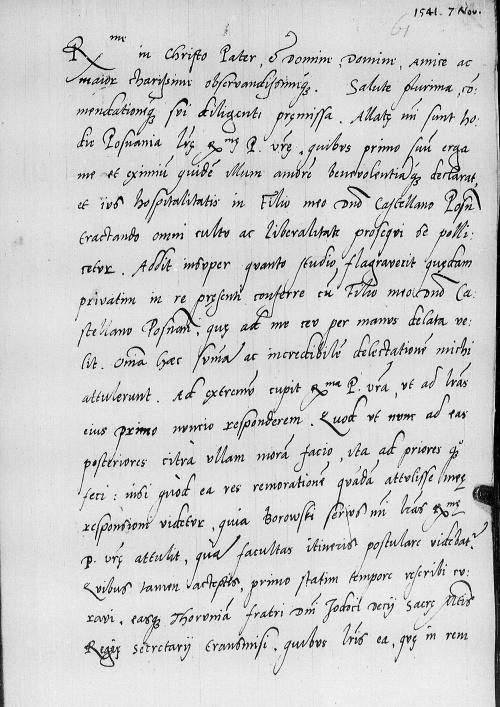 1541. 7 Nov.
61
R me in Christo Pater, et Domine, Domine, Amice ac
maior charissime observandissimeq. Salute plurima, co-
mendationeq sui diligenti premissa. Allatę mi sunt ho-
die Posnania lrę exmę P. vrę, quibus primo suu erga
me et eximiu quide illum amore benevolentiaq declarat,
et ius hospitalitatis in Filio meo Dno Castellano Posn
tractando omni cultu ac liberalitate prosequi se polli-
cetur. Addit insuper quanto studio flagraverit quędam
privatim in re pręsenti conferre cu Filio meo Dno Ca-
stellano Posnan, quę ad me ceu per manus delata ve-
lit. Omia hæc suma ac incredibile delectatione michi
attulerunt. Ad extremu cupit exma P. vra, ut ad lras
eius primo nuncio responderem. Quod ut nunc ad eas
posteriores citra ullam mora facio, ita ad priores quoq
feci: nisi quod ea res remoratione quada attulisse meę
responsioni videtur, quia Borowski serius mi lras exmę
P. vrę attulit, qua facultas itineris postulare videbatr.
Quibus tamen acceptis, primo statim tempore rescribi cu-
ravi, easq Thorunia fratri Dni Jodoci Decij Sacrę Mtis
Regię secretarij transmisi, quibus lris ea, quę in rem